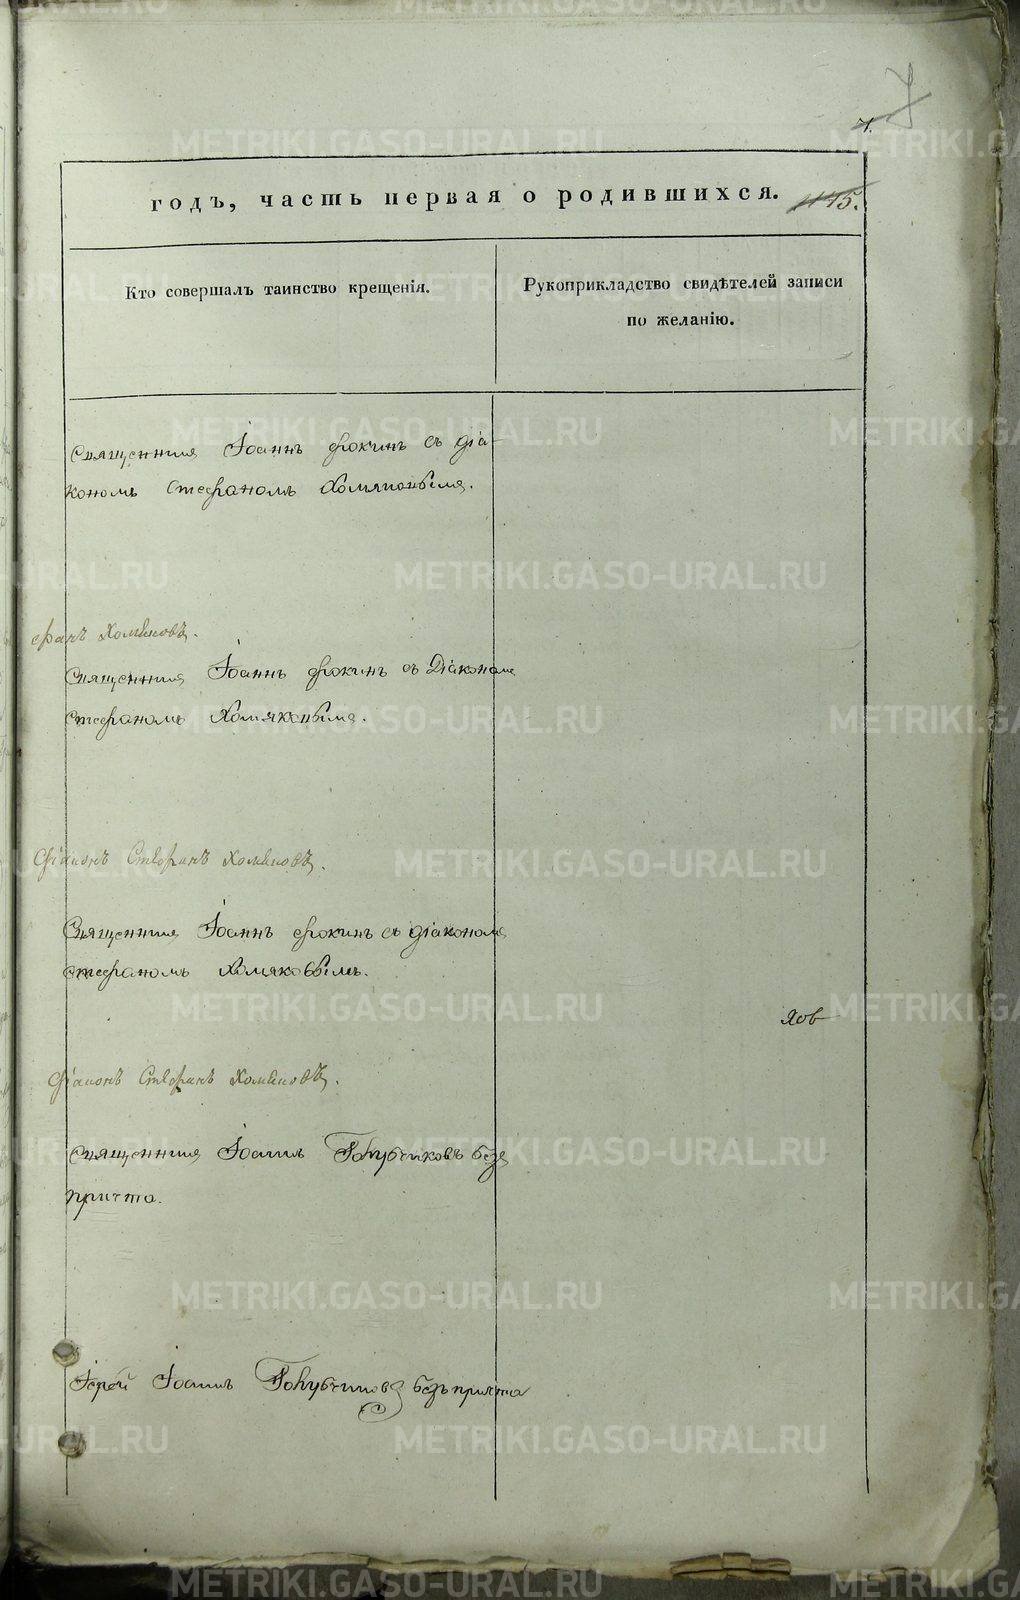 7
годъ, часть первая о родившихся.
Кто совершалъ таинство крещенія.
Рукоприкладство свидѣтелей записи
по желанію.
Священник Іоаннъ Фокинъ съ діа-
кономъ Стефаномъ Хомяковымъ.
фанъ Хомяковъ.
Священник Іоаннъ Фокинъ съ Діакономъ
Стефаномъ Хомяковымъ.
Діаконъ Стефанъ Хомяковъ.
Священник Іоаннъ Фокинъ съ діакономъ
Стефаномъ Хомяковымъ.
яов
Діаконъ Стефанъ Хомяковъ.
Священник Іоаннъ Голубчиковъ безъ
причта.
Іерей Іоаннъ Голубчиковъ безъ причта
METRIKI.GASO-URAL.RU